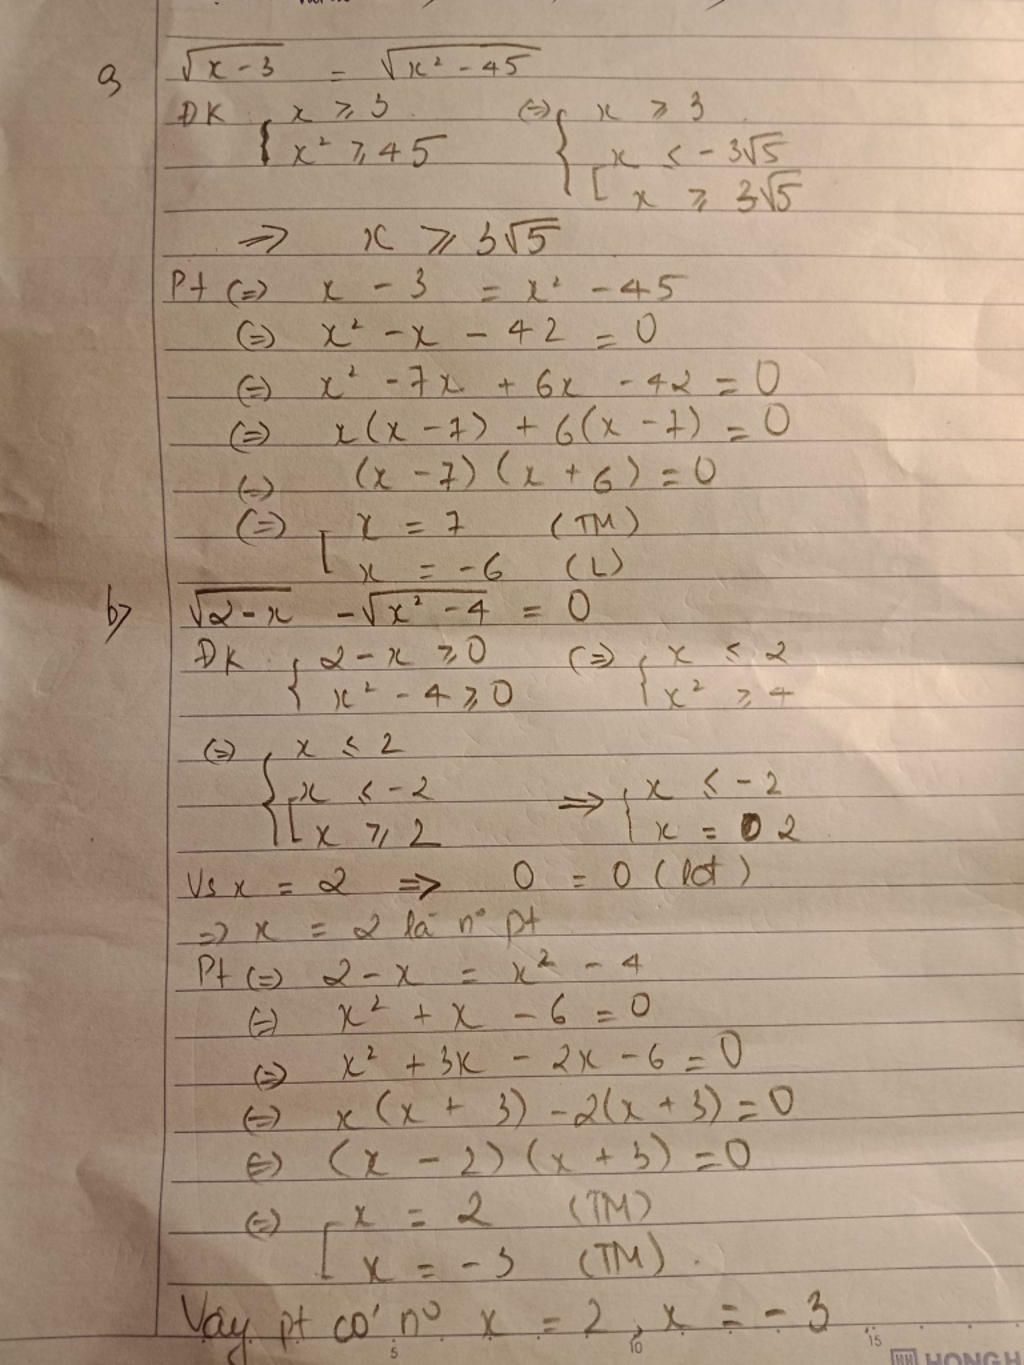 a) √(x - 3) = √(x² - 45)
ĐK { x ≥ 3 (=) { x ≥ 3
{ x² ≥ 45 [ x ≤ -3√5
[ x ≥ 3√5
=> x ≥ 3√5
Pt (=) x - 3 = x² - 45
(=) x² - x - 42 = 0
(=) x² - 7x + 6x - 42 = 0
(=) x(x - 7) + 6(x - 7) = 0
(=) (x - 7)(x + 6) = 0
(=) [ x = 7 (TM)
[ x = -6 (L)
b) √(2 - x) - √(x² - 4) = 0
ĐK { 2 - x ≥ 0 (=) { x ≤ 2
{ x² - 4 ≥ 0 { x² ≥ 4
(=) { x ≤ 2
{ [ x ≤ -2 => { x ≤ -2
[ x ≥ 2 { x = 2
Vs x = 2 => 0 = 0 (lđt)
=> x = 2 là n° pt
Pt (=) 2 - x = x² - 4
(=) x² + x - 6 = 0
(=) x² + 3x - 2x - 6 = 0
(=) x(x + 3) - 2(x + 3) = 0
(=) (x - 2)(x + 3) = 0
(=) [ x = 2 (TM)
[ x = -3 (TM).
Vậy pt có n° x = 2, x = -3
5 10 15
HONG H